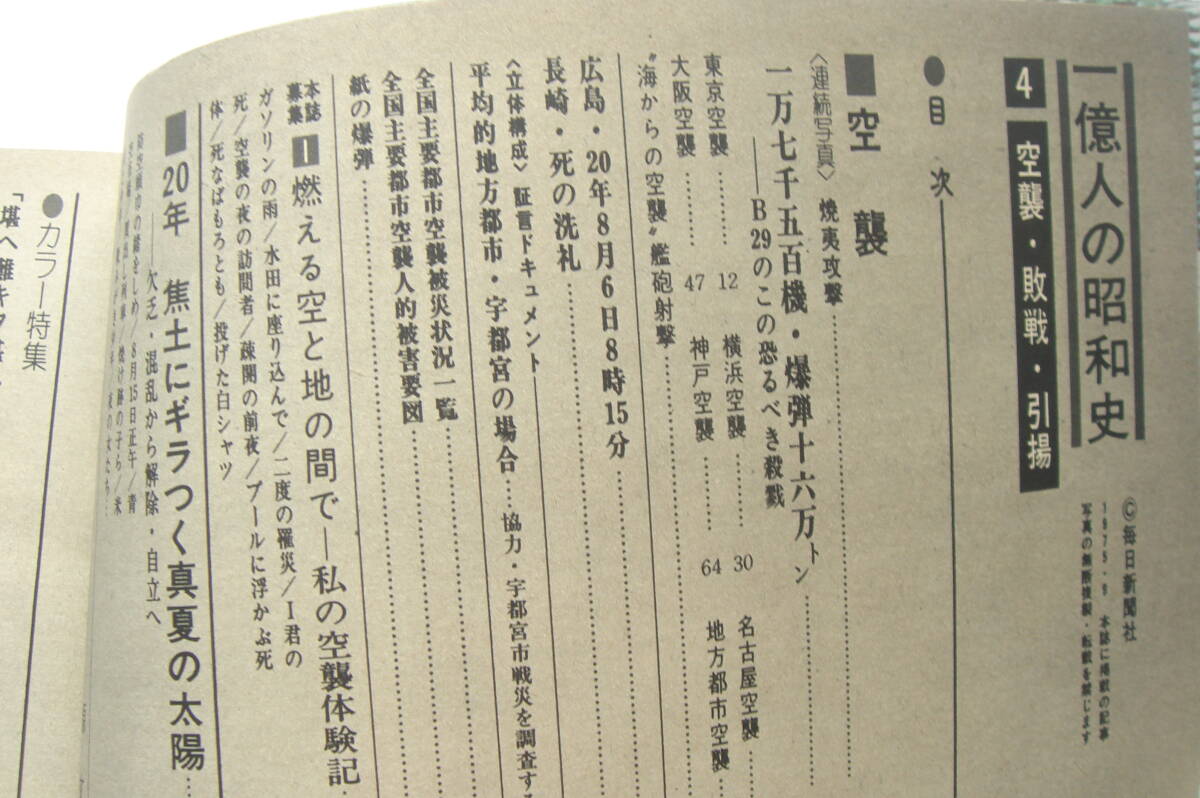 一億人の昭和史
4 空襲・敗戦・引揚
©毎日新聞社
1975・9 本誌に掲載の記事
写真の無断複製・転載を禁じます
●目次
■空襲
〈連続写真〉焼夷攻撃
一万七千五百機・爆弾十六万トン
──B29のこの恐るべき殺戮
東京空襲 12 横浜空襲 30 名古屋空襲
大阪空襲 47 神戸空襲 64 地方都市空襲
“海からの空襲”艦砲射撃
広島・20年8月6日8時15分
長崎・死の洗礼
〈立体構成〉証言ドキュメント
平均的地方都市・宇都宮の場合 協力・宇都宮市戦災を調査す
全国主要都市空襲被災状況一覧
全国主要都市空襲人的被害要図
紙の爆弾
本誌募集 1 燃える空と地の間で―私の空襲体験記
ガソリンの雨/水田に座り込んで/二度の罹災/I君の
死/空襲の夜の訪問者/疎開の前夜/プールに浮かぶ死
体/死なばもろとも/投げた白シャツ
■20年 焦土にギラつく真夏の太陽
──欠乏・混乱から解除・自立へ
8月15日正午/青
焼け跡の子ら/米
●カラー特集
「堪ヘ難キヲ